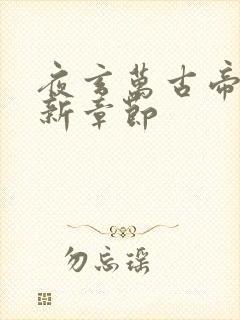 夜玄萬古帝
新章節
勿忘瑤